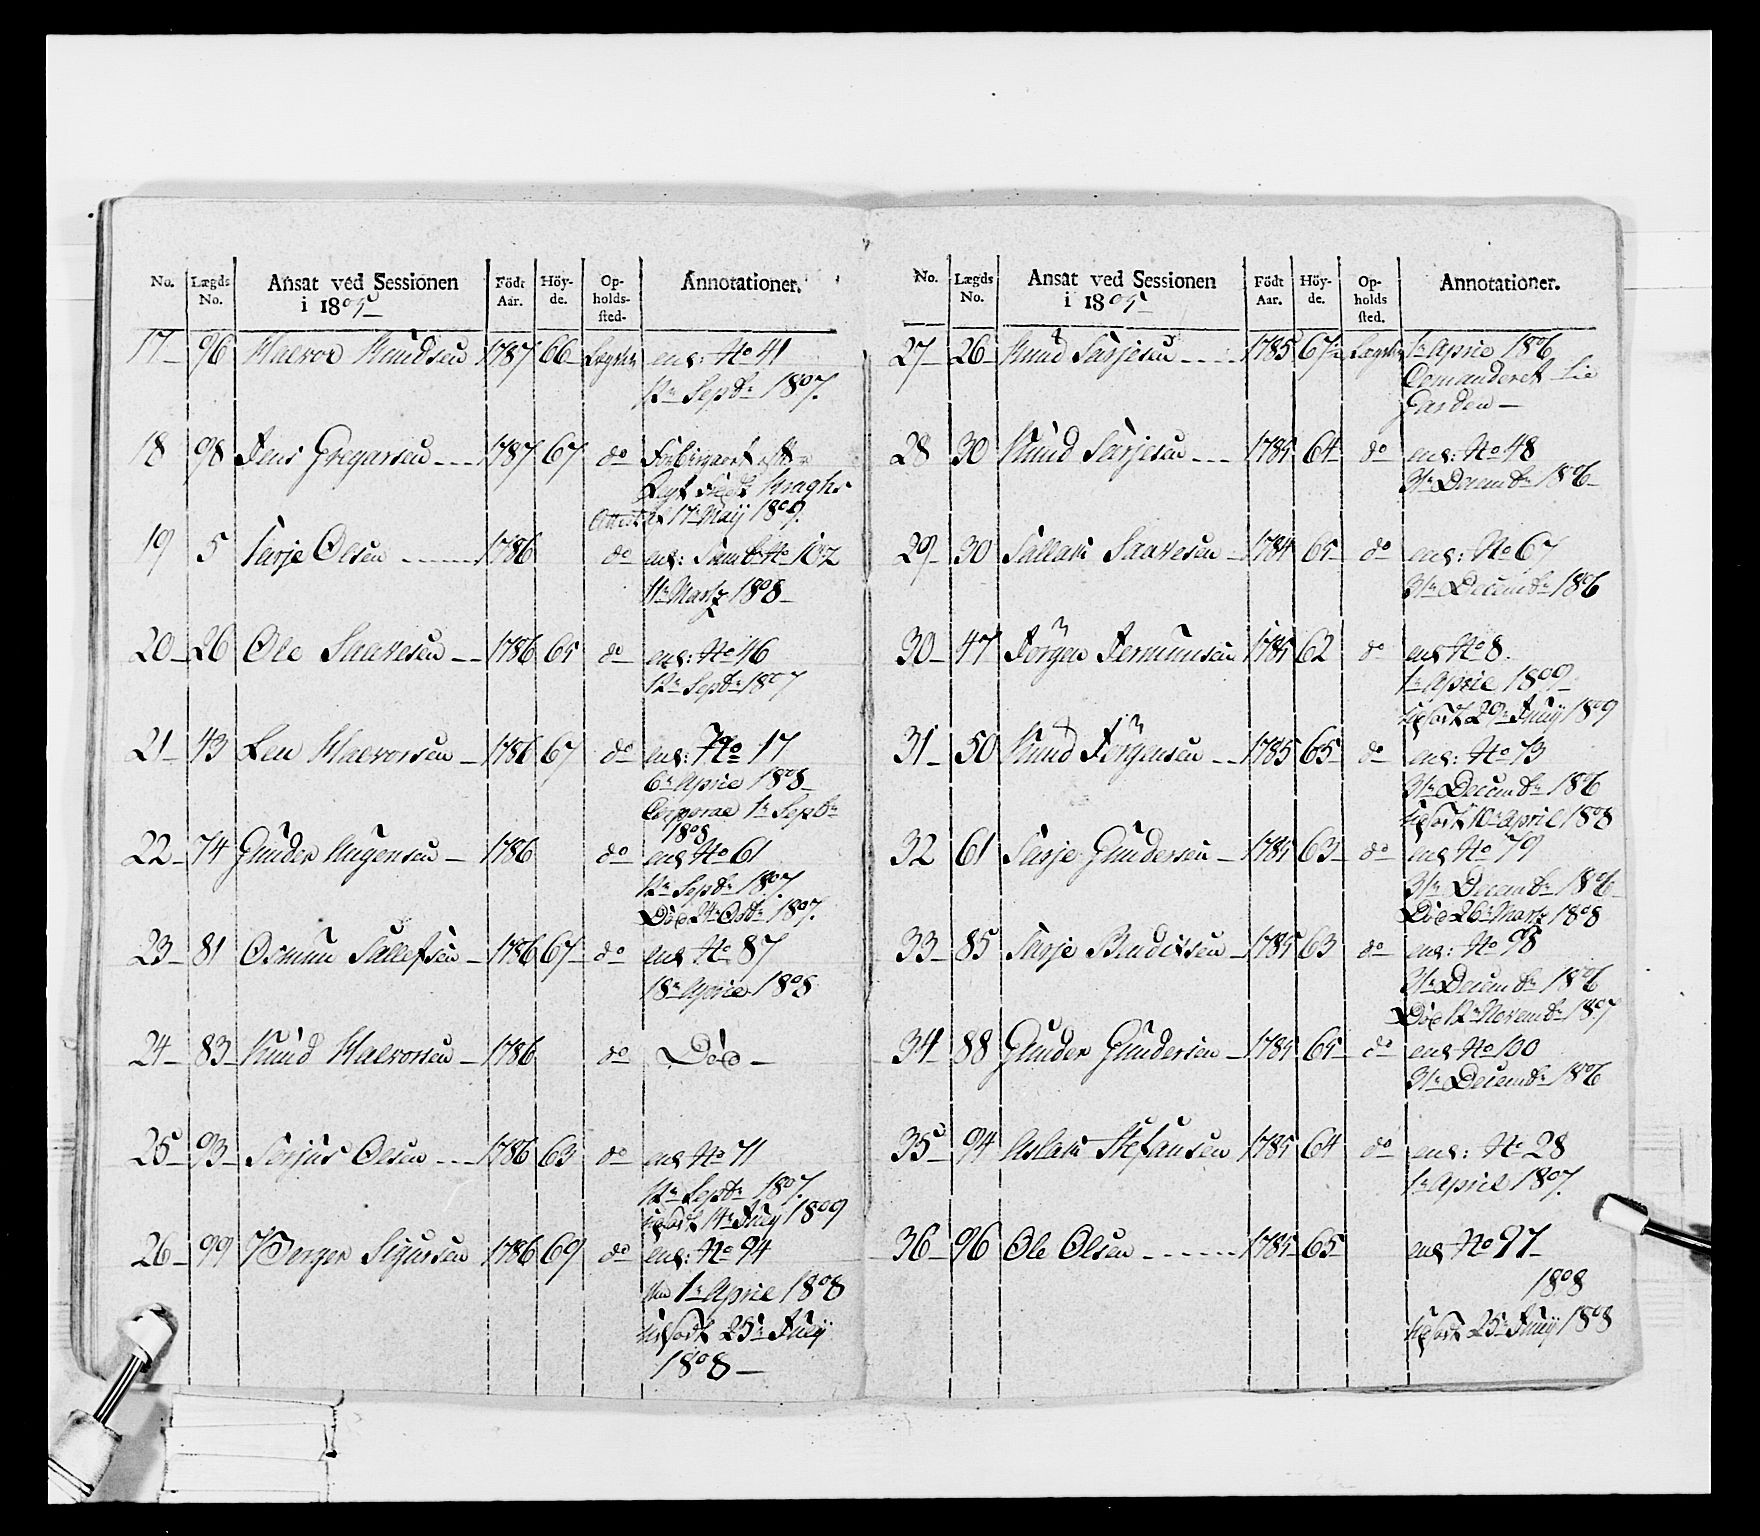 No. Lægds No. Ansat ved Sessionen i 1805 Födt Aar. Höy-de. Op-holds-sted. Annotationer.
17 96 Halvor Knudsen 1787 66 Lægdet ans: No 41
12te Septbr 1807.
18 98 Jens Gregarsen 1787 67 do
Attest af 17 Maij 1809.
19 5 Tarje Olsen 1786 do ans: No 102
11te Martz 1808
20 26 Ole Saavesen 1786 65 do ans: No 46
12te Septbr 1807
21 43 Leu Halvorsen 1786 67 do ans: No 17
6te April 1808
Corporal 1te Septbr
1808
22 74 Gunder Augensen 1786 do ans No 61
12te Septbr 1807.
Död 24te Octbr 1807.
23 81 Osmun Sallefsen 1786 67 do ans No 87
18te April 1808
24 83 Knud Halvorsen 1786 do Död
25 93 Torjus Olsen 1786 63 do ans No 71
12te Septbr 1807.
udsodt 14te Julij 1809
26 99 Berger Sigursen 1786 69 do ans: No 94
den 1te April 1808
udsodt 25te Julij
1808
No. Lægds No. Ansat ved Sessionen i 1805 Födt Aar. Höy-de. Op-holds sted. Annotationer.
27 26 Knud Tarjesen 1785 67 Lægdet 1te April 1806
Comanderet til
Garden
28 30 Knud Tarjesen 1785 64 do ans: No 48
31te Decembr 1806
29 30 Tallak Saavesen 1784 65 do ans: No 67
31te Decembr 1806
30 47 Jörgen Jermunsen 1785 62 do ans No 8
1te April 1809
udsodt 29te Julij 1809
31 50 Knud Jörgensen 1785 65 do ans: No 73
31te Decembr 1806
udsodt 10te April 1808
32 61 Tarje Gundersen 1785 63 do ans No 79
31te Decembr 1806
Död 26te Martz 1808
33 85 Tarje Bendixsen 1785 63 do ans: No 98
31te Decembr 1806
Död 12te Novembr 1807
34 88 Gunder Gundersen 1785 65 do ans No 100
31te Decembr 1806
35 94 Aslak Stefansen 1785 64 do ans: No 28
1te April 1807.
36 96 Ole Olsen 1785 65 ans No 97
1808
udsodt 25te Julij 1808